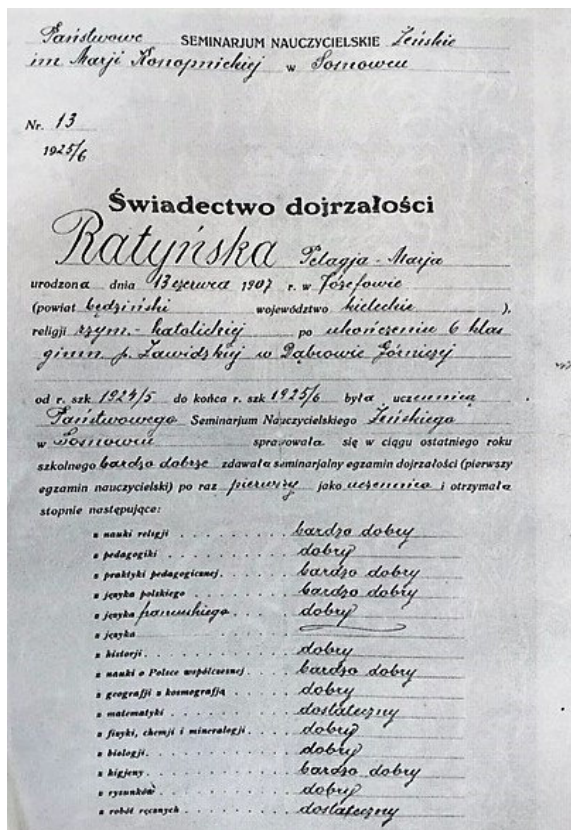 Państwowe SEMINARJUM NAUCZYCIELSKIE Żeńskie
im Marji Konopnickiej w Sosnowcu
Nr. 13
1925/6
Świadectwo dojrzałości
Ratyńska Pelagja - Marja
urodzona dnia 13 czerwca 1907 r. w Józefowie
(powiat będziński województwo kieleckie ),
religji rzym.-katolickiej po ukończeniu 6 klas
gimn. p. Zawidzkiej w Dąbrowie Górniczej
od r. szk 1924/5 do końca r. szk 1925/6 była uczennicą
Państwowego Seminarjum Nauczycielskiego Żeńskiego
w Sosnowcu sprawowała się w ciągu ostatniego roku
szkolnego bardzo dobrze zdawała seminarjalny egzamin dojrzałości (pierwszy
egzamin nauczycielski) po raz pierwszy jako uczennica i otrzymała
stopnie następujące:
z nauki religji . . . . . . . bardzo dobry
z pedagogiki . . . . . . . dobry
z praktyki pedagogicznej . . . . bardzo dobry
z języka polskiego . . . . . . bardzo dobry
z języka francuskiego . . . dobry
z języka . . . . . . .
z historji . . . . . . . dobry
z nauki o Polsce współczesnej . . . bardzo dobry
z geografji z kosmografją . . . . dobry
z matematyki . . . . . . . dostateczny
z fizyki, chemji i mineralogji . . . dobry
z biologji . . . . . . . dobry
z higjeny . . . . . . . bardzo dobry
z rysunków . . . . . . . dobry
z robót ręcznych . . . . . . dostateczny